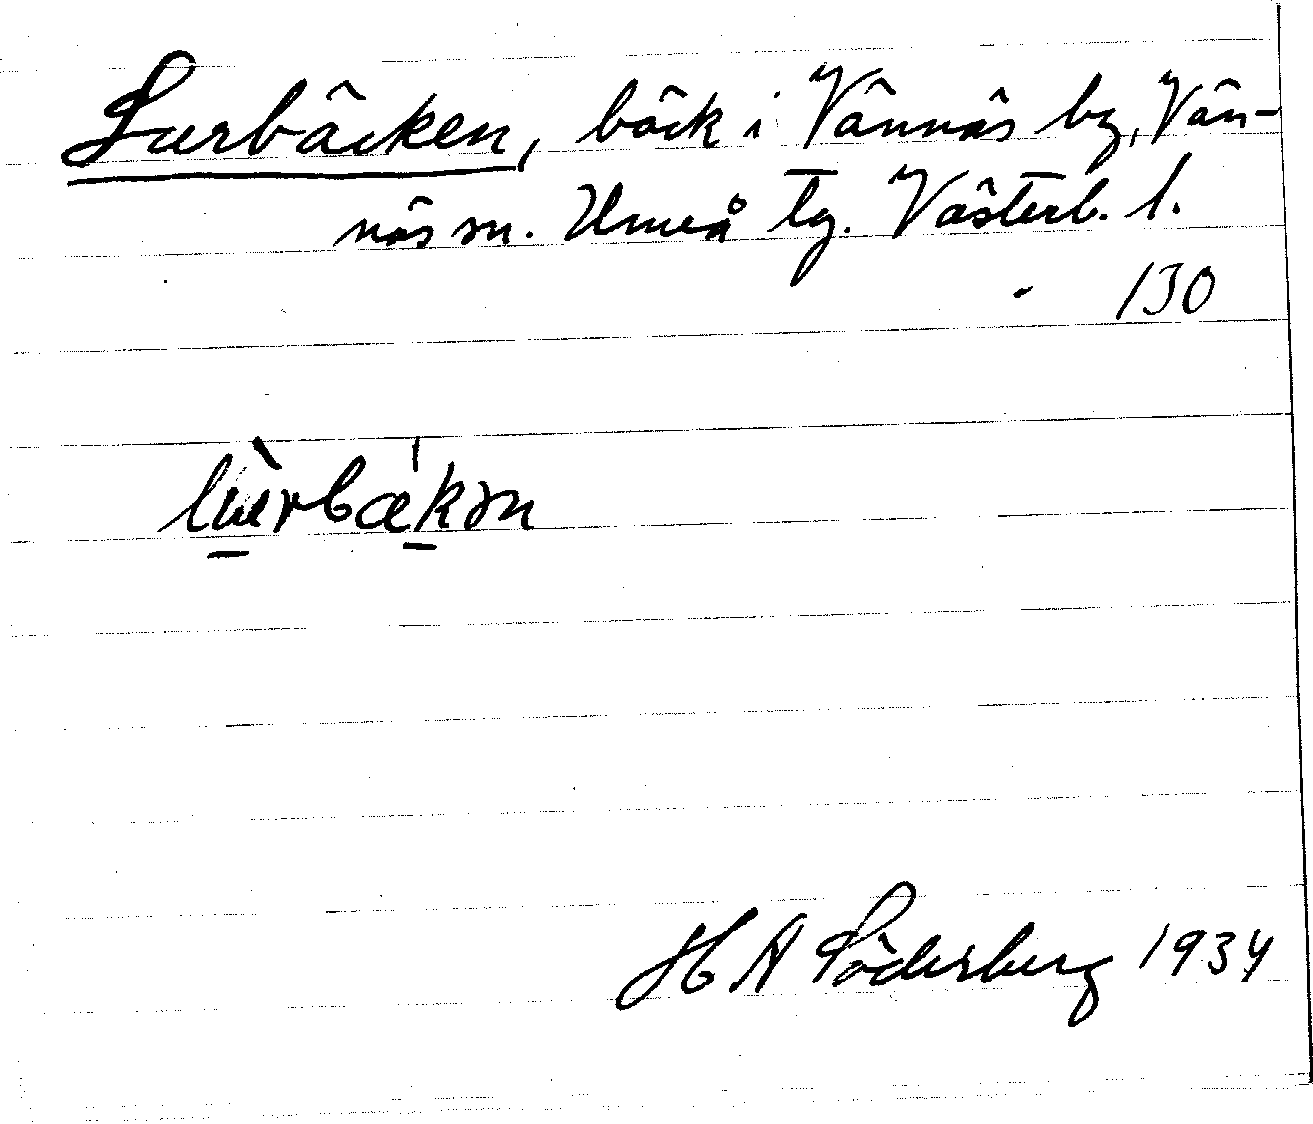 Lurbäcken, bäck i Vännäs by, Vän-
näs sn. Umeå tg. Västerb. l.
130
lùrbækən
H A Söderberg 1934